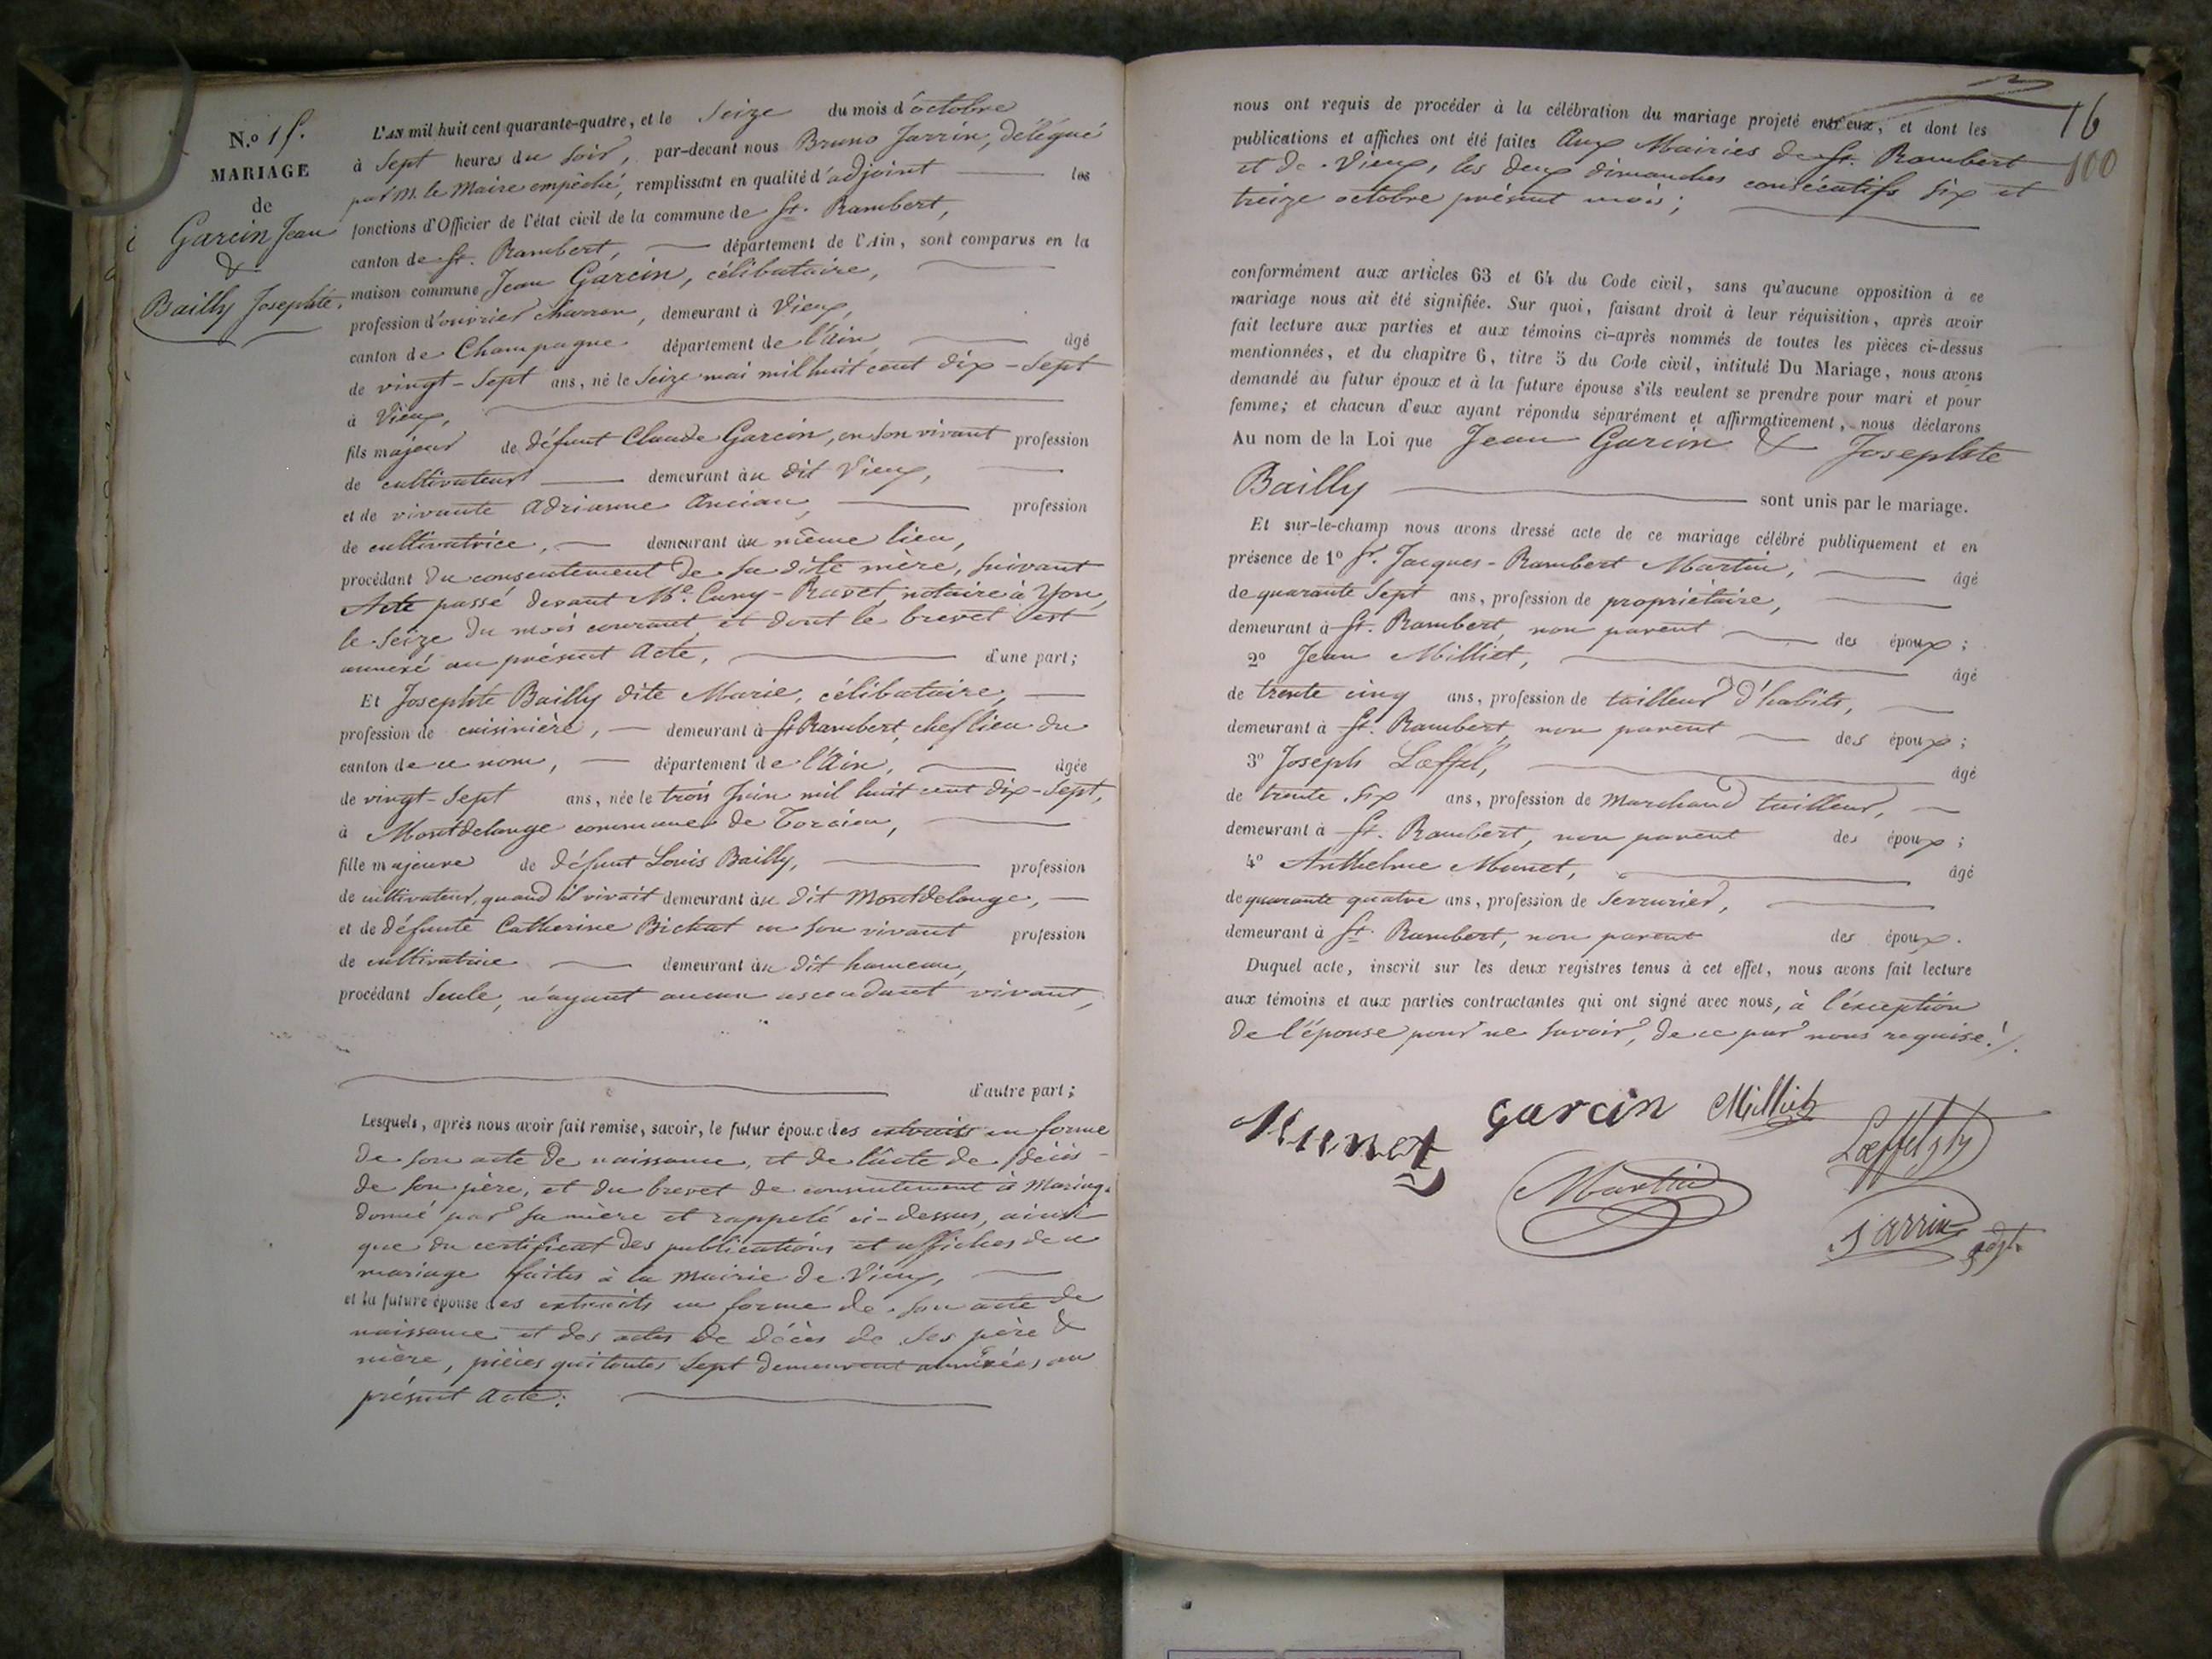 N.o 15.
MARIAGE
de
Garcin Jean
&
Bailly Josephte.
L'AN mil huit cent quarante-quatre, et le seize du mois d'octobre
à sept heures du soir, par-devant nous Bruno Jarrin, délégué
par M. le Maire empêché, remplissant en qualité d'adjoint les
fonctions d'Officier de l'état civil de la commune de St. Rambert,
canton de St. Rambert, département de l'Ain, sont comparus en la
maison commune Jean Garcin, célibataire,
profession d'ouvrier charron, demeurant à Vieux,
canton de Champagne département de l'Ain, âgé
de vingt-sept ans, né le seize mai mil huit cent dix-sept
à Vieux,
fils majeur de défunt Claude Garcin, en son vivant profession
de cultivateur demeurant au dit Vieux,
et de vivante Adrianne Ancian, profession
de cultivatrice, demeurant au même lieu,
procédant du consentement de sa dite mère, suivant
Acte passé devant Me. Cuny-Ravet, notaire à Yon,
le seize du mois courant et dont le brevet est
annexé au présent Acte, d'une part;
Et Josephte Bailly dite Marie, célibataire,
profession de cuisinière, demeurant à St Rambert, chef lieu du
canton de ce nom, département de l'Ain, âgée
de vingt-sept ans, née le trois juin mil huit cent dix-sept,
à Montdelange commune de Torcieu,
fille majeure de défunt Louis Bailly, profession
de cultivateur, quand il vivait demeurant au dit Montdelange,
et de défunte Catherine Bichat en son vivant profession
de cultivatrice demeurant au dit hameau,
procédant seule, n'ayant aucun ascendant vivant,
d'autre part;
Lesquels, après nous avoir fait remise, savoir, le futur époux des extraits en forme
de son acte de naissance, et de l'acte de décès
de son père, et du brevet de consentement à Mariag.
donné par sa mère et rappelé ci-dessus, ainsi
que du certificat des publications et affiches de ce
mariage faites à la Mairie de Vieux,
et la future épouse des extraits en forme de son acte de
naissance et des actes de décès de ses père &
mère, pièces qui toutes sept demeurent annexées au
présent Acte;
16
100
nous ont requis de procéder à la célébration du mariage projeté entr'eux, et dont les
publications et affiches ont été faites Aux Mairies de St. Rambert
et de Vieux, les deux dimanches consécutifs six et
treize octobre présent mois;
conformément aux articles 63 et 64 du Code civil, sans qu'aucune opposition à ce
mariage nous ait été signifiée. Sur quoi, faisant droit à leur réquisition, après avoir
fait lecture aux parties et aux témoins ci-après nommés de toutes les pièces ci-dessus
mentionnées, et du chapitre 6, titre 5 du Code civil, intitulé Du Mariage, nous avons
demandé au futur époux et à la future épouse s'ils veulent se prendre pour mari et pour
femme; et chacun d'eux ayant répondu séparément et affirmativement, nous déclarons
Au nom de la Loi que Jean Garcin & Josephte
Bailly sont unis par le mariage.
Et sur-le-champ nous avons dressé acte de ce mariage célébré publiquement et en
présence de 1o Sr. Jacques-Rambert Martin, âgé
de quarante sept ans, profession de propriétaire,
demeurant à St. Rambert, non parent des époux;
2o Jean Milliet, âgé
de trente cinq ans, profession de tailleur d'habits,
demeurant à St. Rambert, non parent des époux;
3o Joseph Lœffel, âgé
de trente six ans, profession de Marchand tailleur,
demeurant à St. Rambert, non parent des époux;
4o Anthelme Munet, âgé
de quarante quatre ans, profession de serrurier,
demeurant à St. Rambert, non parent des époux.
Duquel acte, inscrit sur les deux registres tenus à cet effet, nous avons fait lecture
aux témoins et aux parties contractantes qui ont signé avec nous, à l'exception
de l'épouse pour ne savoir, de ce par nous requise./.
Munet garcin Milliet
Lœffel
Martin
Jarrin adjt.